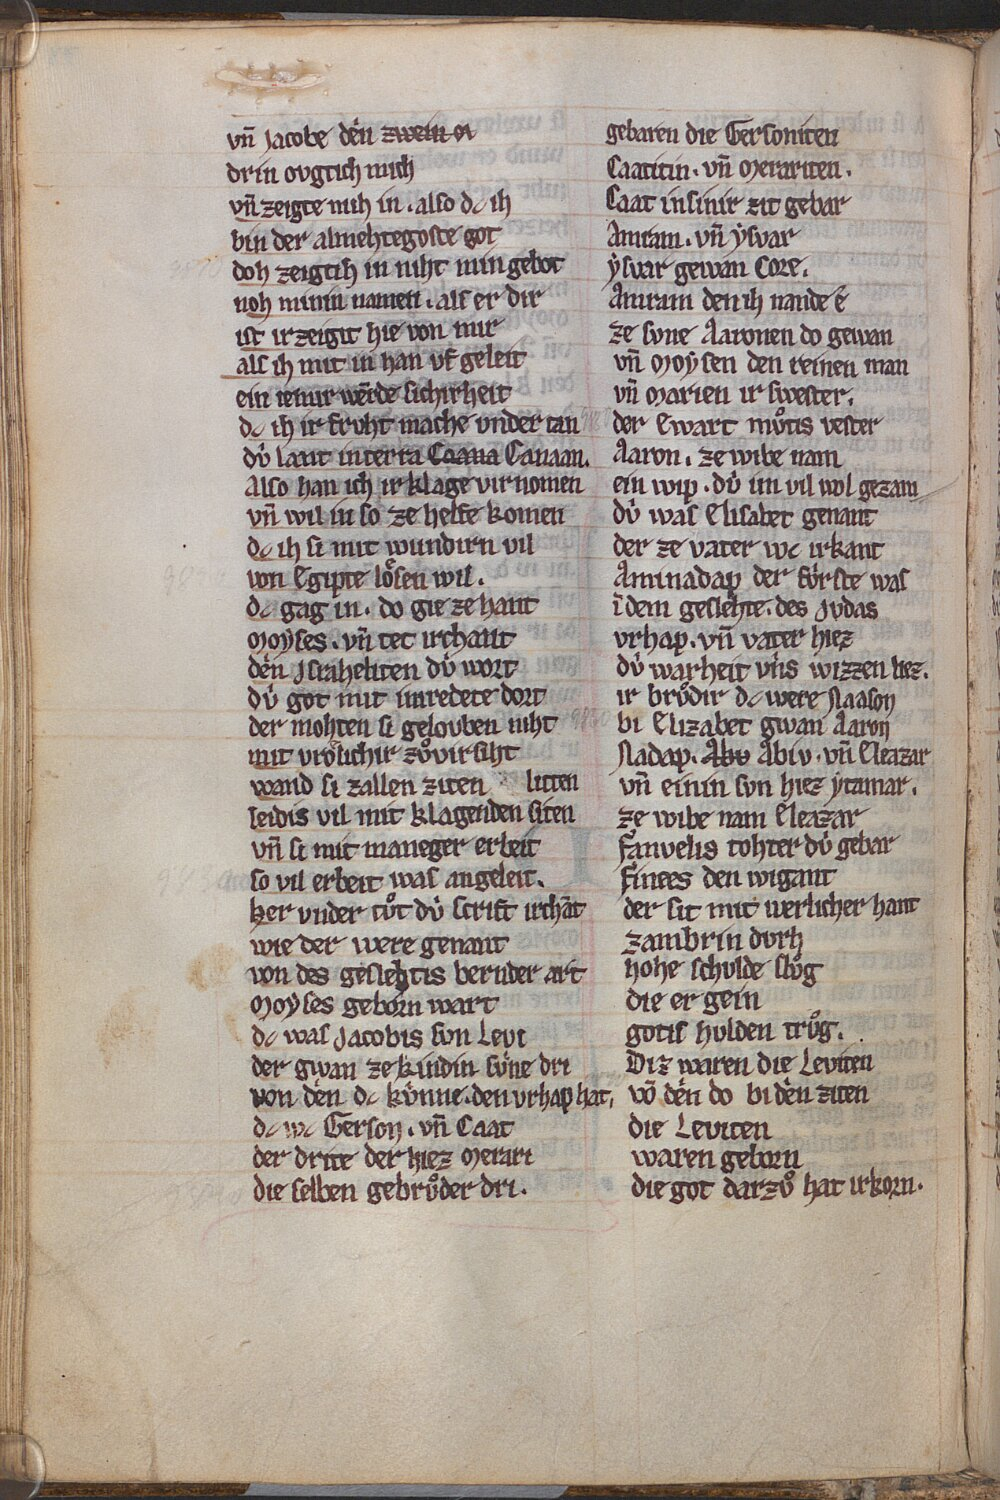 vn̄ Jacobe den zwein er
drin ovgtich mich
vn̄ zeigte mih in. also dc ih
bin der almehtegoste got
doh zeigtih in niht min gebot
noh minin namen. als er dir
ist irzeigit hie von mir
als ih mit in han vf geleit
ein iemir werde sichirheit
dc ih ir fruht mache vnder tan
dv̊ lant interra Caana Canaan.
Also han ich ir klage virnomen
vn̄ wil in so ze helfe komen
dc ih si mit wundirn vil
von Egipte lo̊sen wil.
dc sag in. do gie ze hant
Moyses. vn̄ tet irchant
den Israheliten dv̊ wort
dv̊ got mit imredete dort
der mohten si gelouben niht
mit vrolichir zv̊virsiht
wand si zallen ziten litten
leidis vil mit klagenden siten
vn̄ si mit maneger erbeit
so vil erbeit was angeleit.
her vnder tůt dv̊ scrift irchāt
wie der were genant
von des geslehtis bernder art
Moyses geborn wart
dc was Jacobis svn Levi
der gwan ze kindin sv̊ne dri
von den dc kv̊nne. den vrhap hat,
dc wc Gerson. vn̄ Caat
der drite der hiez Merari
die selben gebrůder dri.
gebaren die Gersoniten
Caatitin. vn̄ Merariten.
Caat insinir zit gebar
Amram. vn̄ ẏsvar
ẏsvar gewan Core.
Amram den ih nande e
ze svne Aaronen do gewan
vn̄ Moysen den reinen man
vn̄ Marien ir swester.
der Ewart můtis vester
Aaron. ze wibe nam
ein wip. dv̊ im vil wol gezam
dv̊ was Elisabet genant
der ze vater wc irkant
Aminadap der fv̊rste was
ī dem geslehte. des Jvdas
vrhap. vn̄ vater hiez
dv̊ warheit vn̄s wizzen liez.
ir brůdir dc were Naason
bi Elizabet gwan Aaron
Nadap. Abv Abiv. vn̄ Eleazar
vn̄ einin svn hiez ytamar.
ze wibe nam Eleazar
fanvelis tohter dv̊ gebar
finees den wigant
der sit mit werlicher hant
zambrin dvrh
hohe schvlde slůg
die er gein
gotis hvlden trůg.
Diz waren die Leviten
vō den do bi den ziten
die Leviten
waren geborn
die got darzů hat irkorn.